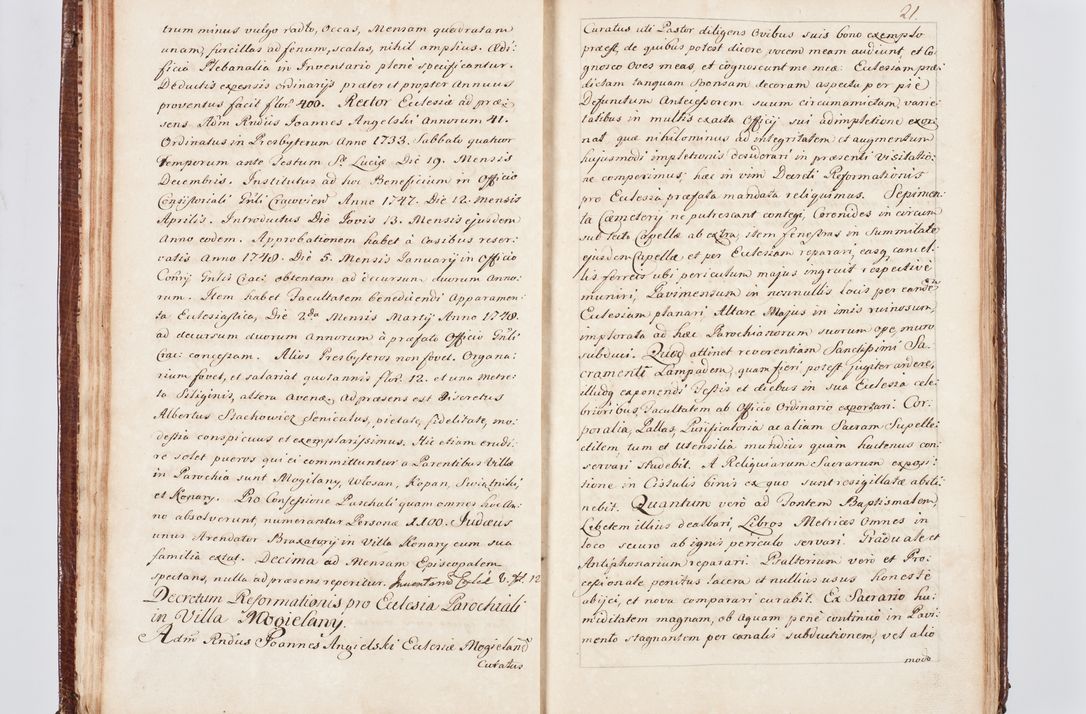 trum minus vulgo radło, Occas, Mensam quadratam
unam, furcillas ad fenum, scalas, nihil amplius. Ædi:
ficia Plebanalia in Inventario plenè specificantur.
Deductis expensis ordinarijs præter et propter Annuus
proventus facit flor. 400. Rector Ecclesiæ ad præ:
sens Adm Rndus Joannes Angelski Annorum 41.
Ordinatus in Presbyterum Anno 1733. Sabbato quatuor
Temporum ante Festum S. Luciæ Die 19. Mensis
Decembris. Institutus ad hoc Beneficium in Officio
Consistoriali Gnli Cracovien Anno 1747. Die 12. Mensis
Aprilis. Introductus Die Jovis 13. Mensis ejusdem
Anno eodem. Approbationem habet à Casibus reser:
vatis Anno 1748. Die 5. Mensis Januarij in Officio
Consij Gnlis Crac: obtentam ad decursum duorum Anno:
rum. Item habet Facultatem benedicendi Apparamen:
ta Ecclesiastica, Die 2da Mensis Martij Anno 1748.
ad decursum duorum Annorum à præfato Officio Gnli
Crac: concessam. Alios Presbyteros non fovet. Organa:
rium fovet, et salariat quotannis flor. 12. et una metre:
ta Siliginis, altera Avenæ, ad præsens est Discretus
Albertus Stachowicz Seniculus, pietate, fidelitate, mo:
destia conspicuus et exemplarissimus. Hic etiam erudi:
re solet pueros qui ei committuntur a Parentibus Villæ
in Parochia sunt Mogilany, Włosan, Kopan, Swiątniki,
et Konary. Pro Confessione Paschali quam omnes hoc An:
no absolverunt, numerantur Personæ 1100. Judæus
unus Arendator Braxatorij in Villa Konary cum sua
familia extat. Decima ad Mensam Episcopalem
spectans, nulla ad præsens reperitur. 12
Decretum Reformationis pro Ecclesia Parochiali
in Villa Mogielany.
Adm Rndus Joannes Angielski Ecclesiæ Mogielan
Curatus
21.
Curatus uti Pastor diligens Ovibus suis bono exemplo
præest, de quibus potest dicere vocem meam audiunt, et Co
gnosco Oves meas, et cognoscunt me meæ: Ecclesiam præ:
dictam tanquam Sponsam decoram aspectu per piè
Defunctum Antecessorem suum circumamictam, varie
tatibus in multis exacta Officij sui adimpletione exor
nat, quæ nihilominus ad integritatem et augmentum
hujusmodi impletionis desiderari in præsenti Visitatio:
ne comperimus, hæc in vim Decreti Reformationis
pro Ecclesia præfata mandata relinquimus. Sepimen:
ta Cæmeterij ne putrescant contegi, Coronides in circum
sub tecto Capellæ ab extra, item fenestras in Summitate
ejusdem Capellæ et per Ecclesiam reparari, easq cancel:
lis ferreis ubi periculum majus ingruit respectivè
muniri, Pavimentum in nonnullis locis per eandem
Ecclesiam planari, Altare Majus in imis ruinosum,
implorata ad hæc Parochianorum suorum ope, muro
subduci. Quod attinet reverentiam Sanctissimi Sa:
cramenti Lampadem, quam fieri potest jugiter ardere,
illudq exponendi Festis et diebus in sua Ecclesia cele
brioribus Facultatem ab Officio Ordinario exportari. Cor:
poralia, Pallas, Purificatoria ac aliam Sacram Supelle:
ctilem, tum et Utensilia mundius quàm hactenus con:
servari studebit. A Reliquiarum Sacrarum exposi:
tione in Cistulis binis ex quo sunt resigillatæ absti:
nebit. Quantum verò ad Fontem Baptismalem,
Lebetem illius dealbari, Libros Metrices Omnes in
loco securo ab ignis periculo servari. Graduale et
Antiphonarium reparari. Psalterium verò et Pro:
cessionale penitus lacera et nullius usus honestè
abijci, et nova comparari curabit. Ex Sacrario hu:
miditatem magnam, ob Aquam penè continuò in Pavi:
mento stagnantem per canalis subductionem, vel alio
modo